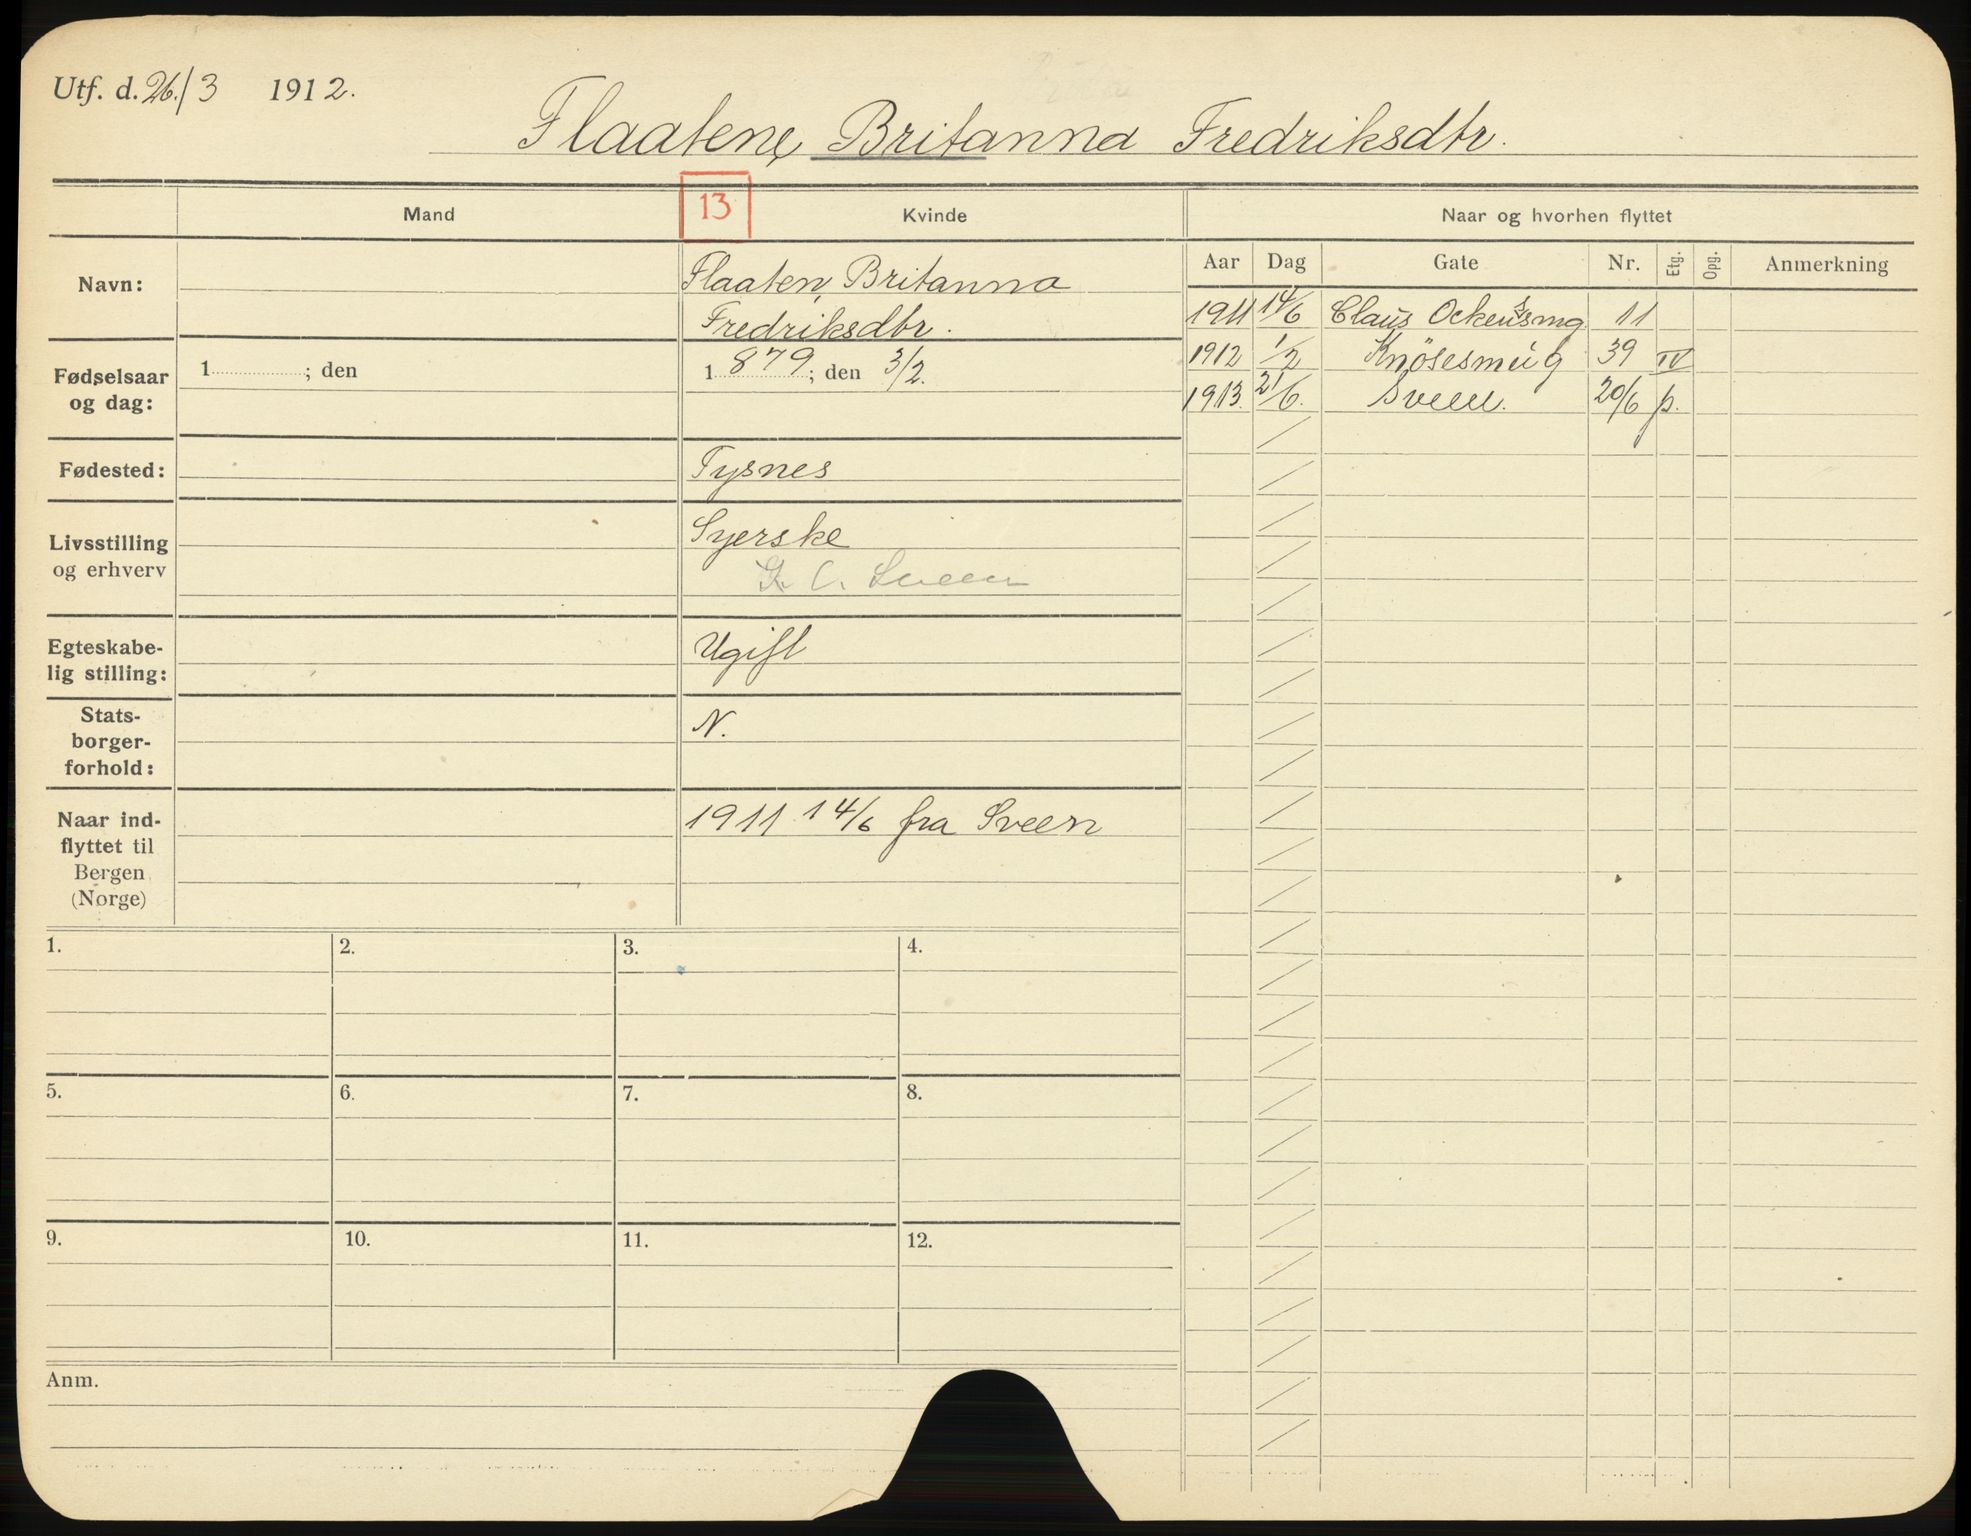 Utf. d. 26./3 1912.
Flaaten, Britanna Fredriksdtr.
Mand
13
Kvinde
Naar og hvorhen flyttet
Aar Dag Gate Nr. Etg. Opg. Anmerkning
Navn:
Flaaten, Britanna
Fredriksdtr.
1911 14/6 Claus Ockenssmg 11
1912 1/2 Knösesmug 39 IV
1913. 21/6. Sveen. 20/6 p.
Fødselsaar
og dag:
1 ; den
1 879 ; den 3/2.
Fødested:
Tysnes
Livsstilling
og erhverv
Syerske
Sveen
Egteskabe-
lig stilling:
Ugift
Stats-
borger-
forhold:
N.
Naar ind-
flyttet til
Bergen
(Norge)
1911 14/6 fra Sveen
1. 2. 3. 4.
5. 6. 7. 8.
9. 10. 11. 12.
Anm.